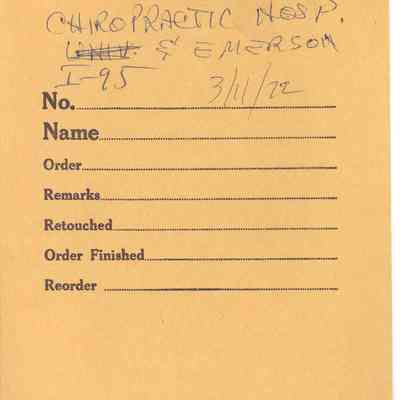 CHIROPRACTIC HOSP.
UNIV. & EMERSON
I-95
3/11/72
No.
Name
Order
Remarks
Retouched
Order Finished
Reorder